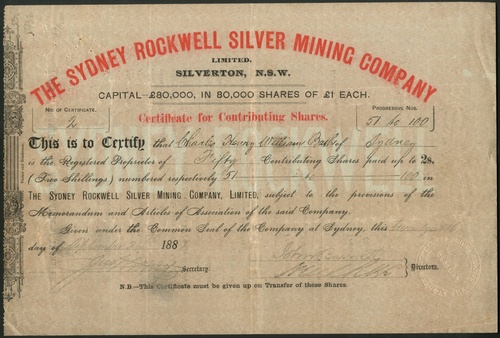 THE SYDNEY ROCKWELL SILVER MINING COMPANY
LIMITED.
SILVERTON, N.S.W.
CAPITAL—£80,000, IN 80,000 SHARES OF £1 EACH.
No. OF CERTIFICATE.
2
Certificate for Contributing Shares.
PROGRESSIVE NOS.
51 to 100
This is to Certify that Charles Henry William of Sydney
is the Registered Proprietor of Fifty Contributing Shares paid up to 2s.
(Two Shillings) numbered respectively 51 to 100 in
THE SYDNEY ROCKWELL SILVER MINING COMPANY, LIMITED, subject to the provisions of the
Memorandum and Articles of Association of the said Company.
Given under the Common Seal of the Company at Sydney, this
day of 188
Secretary.
Directors.
N.B.—This Certificate must be given up on Transfer of these Shares.